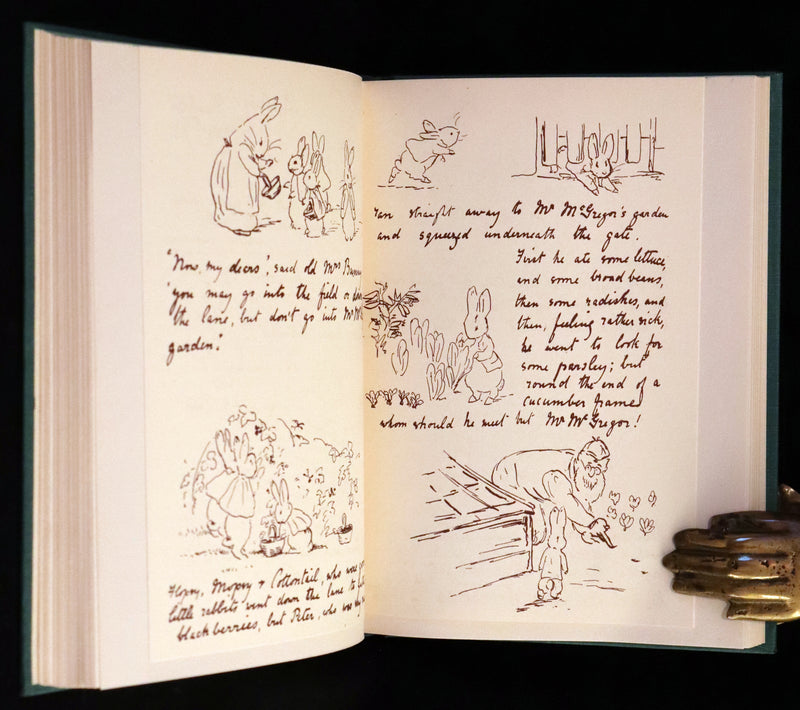 "Now, my dears", said old Mrs Bunny
"you may go into the field or down
the lane, but don't go into Mr McG
garden."
Flopsy, Mopsy & Cottontail, who were good
little rabbits went down the lane to
blackberries, but Peter, who was
ran straight away to Mr McGregor's garden
and squeezed underneath the gate.
First he ate some lettuce,
and some broad beans,
then some radishes, and
then, feeling rather sick,
he went to look for
some parsley; but
round the end of a
cucumber frame
whom should he meet but Mr McGregor!